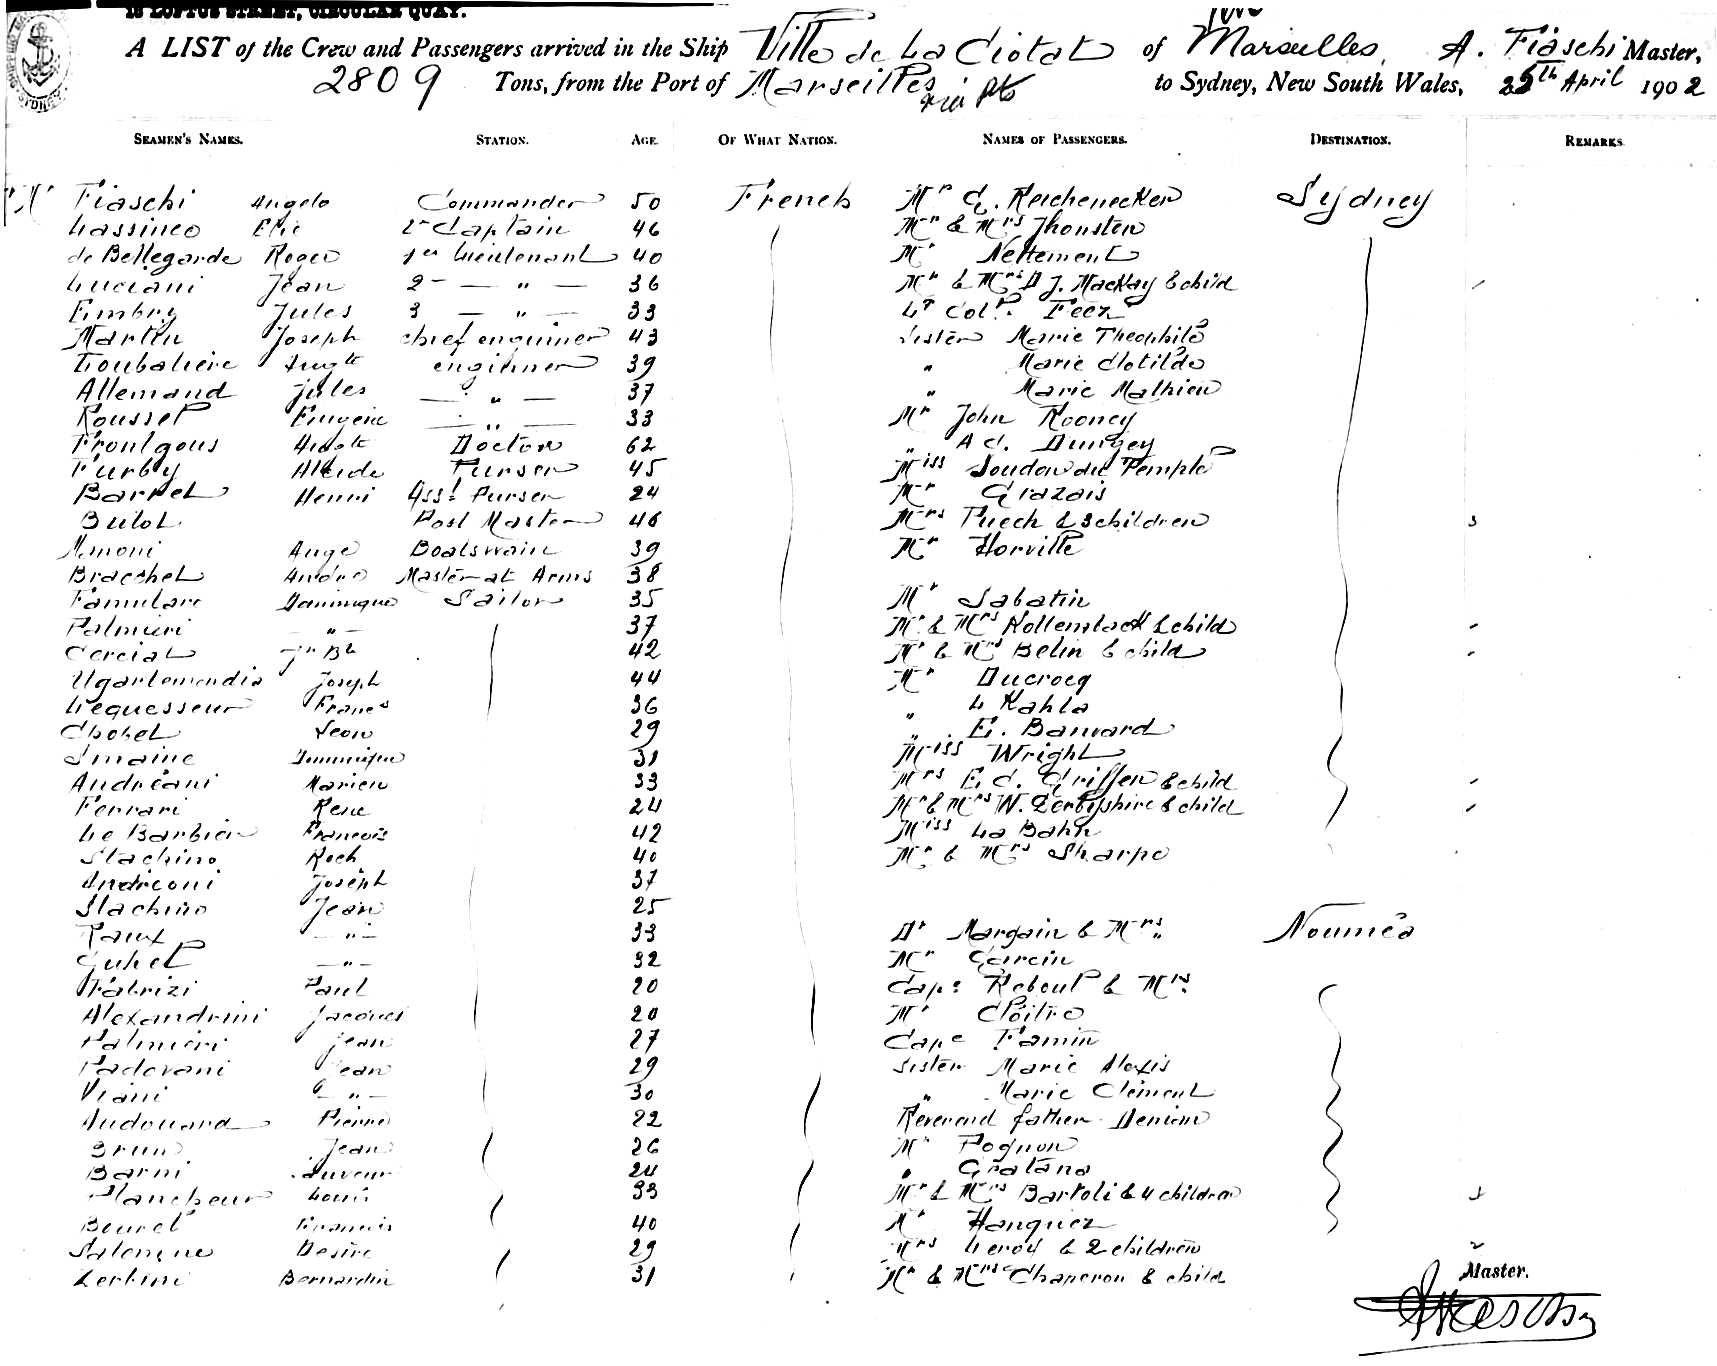 15 LOFTUS STREET, CIRCULAR QUAY.
A LIST of the Crew and Passengers arrived in the Ship Ville de La Ciotat of Marseilles, A. Fiaschi Master,
2809 Tons, from the Port of Marseilles via Pts to Sydney, New South Wales, 25th April 1902
SEAMEN'S NAMES. STATION. AGE. OF WHAT NATION. NAMES OF PASSENGERS. DESTINATION. REMARKS.
Fiaschi Angelo Commander 50 French Mr G. Reichenecker Sydney
Lassinco Elie 2e Captain 46 Mr & Mrs Jhonston
de Bellegarde Roger 1er Lieutenant 40 Mr Nettement
Luciani Jean 2 — " — 36 Mr & Mrs D J. MacKay & child
Embry Jules 3 — " — 33 Lt Coll. Feez
Martin Joseph chief enginner 43 Sister Marie Theophile
Troubatiere Augte enginner 39 " Marie Clotilde
Allemand Jules — " — 37 " Marie Mathieu
Roussel Eugene — " — 33 Mr John Rooney
Frontgous Augte Doctor 62 " A C. Dungey
Furby Alcide Purser 45 Miss Soudan du Temple
Barrel Henri Asst Purser 24 Mr Grazais
Bulot Post Master 46 Mrs Puech & 3 children 3
Mimoni Ange Boatswain 39 Mr Horville
Bracchet Andre Master at Arms 38
Famulare Dominique Sailor 35 Mr Sabatin
Palmieri — " — 37 Mr & Mrs Hollenback & child
Cercial Jn Bte 42 Mr & Mrs Belin & child
Ugartemendia Joseph 44 Mr Ducrocq
Lequesseur Frances 36 " L Kahla
Chobel Leon 29 " E. Banvard
Smaine Dominique 31 Miss Wright
Andréani Marien 33 Mrs E. C. Griffen & child
Ferrari Rene 24 Mr & Mrs W. Derbyshire & child
Le Barbier Francois 42 Miss La Bahn
Stachino Roch 40 Mr & Mrs Sharpe
Andreoni Joseph 37
Stachino Jean 25
Raux — " — 33 Dr Margain & Mrs " Nouméa
Guhel — " — 32 Mr Garcin
Fabrizi Paul 20 Cape Reboul & Mrs
Alexandrini Jacques 20 Mr Cloitre
Palmieri Jean 27 Cape Famin
Padovani Jean 29 Sister Marie Alexis
Viani — " — 30 " Marie Clement
Audouard Pierre 22 Reverend father Deniau
Brun Jean 26 Mr Pognon
Barni Sauveur 24 " Gratana
Plancheur Louis 33 Mr & Mrs Bartoli & 4 children
Beurel Francois 40 Mr Hanguez
Salomine Desire 29 Mrs Leroy & 2 children 2
Zerbini Bernardin 31 Mr & Mrs Chancron & child
Master.